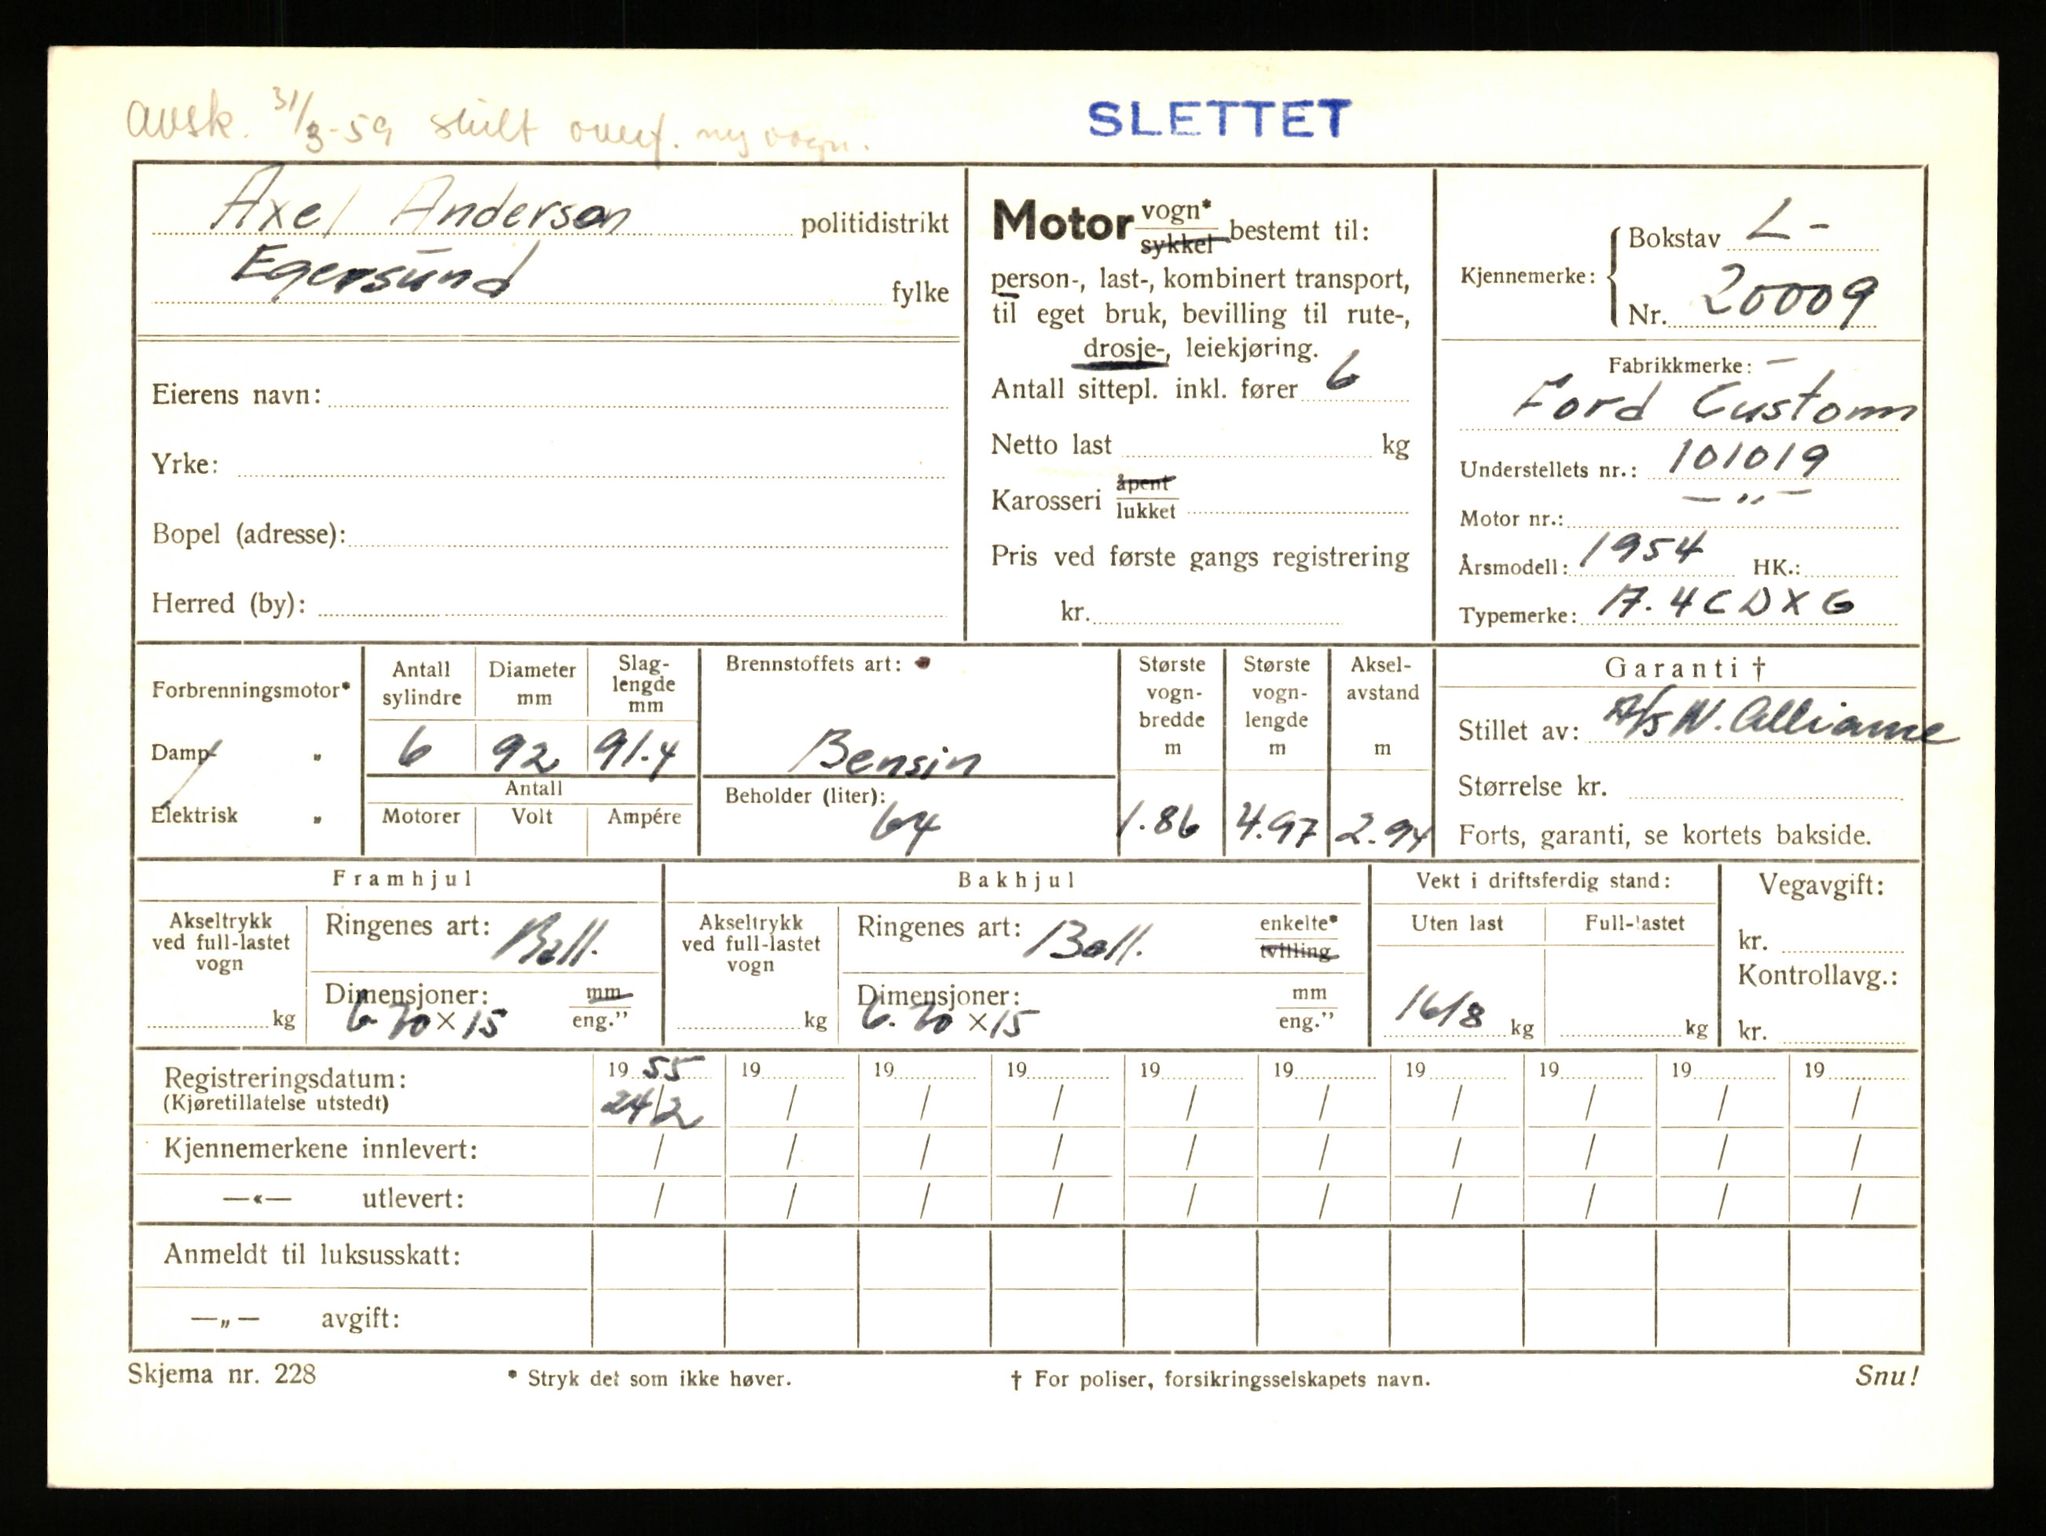 avsk. 31/3-59 skilt overf. ny vogn.
SLETTET
Axel Anderson politidistrikt
Egersund fylke
Eierens navn:
Yrke:
Bopel (adresse):
Herred (by):
Motor vogn* sykkel bestemt til:
person-, last-, kombinert transport,
til eget bruk, bevilling til rute-,
drosje-, leiekjøring.
Antall sittepl. inkl. fører 6
Netto last kg
Karosseri åpent lukket
Pris ved første gangs registrering
kr.
Kjennemerke: Bokstav L-
Nr. 20009
Fabrikkmerke: -
Ford Customn
Understellets nr.: 101019
Motor nr.: — „ —
Årsmodell: 1954 HK.:
Typemerke: 17.4CDXG
Forbrenningsmotor*
Damp „
Elektrisk „
Antall sylindre
6
Diameter mm
92
Slag-lengde mm
91.4
Antall
Motorer Volt Ampére
Brennstoffets art:
Bensin
Beholder (liter):
64
Største vogn-bredde m
1.86
Største vogn-lengde m
4.97
Aksel-avstand m
2.94
Garanti †
Stillet av: A/S N. Alliance
Størrelse kr.
Forts, garanti, se kortets bakside.
Framhjul
Akseltrykk ved full-lastet vogn
kg
Ringenes art: Ball.
Dimensjoner: mm eng."
6.70 × 15
Bakhjul
Akseltrykk ved full-lastet vogn
kg
Ringenes art: Ball. enkelte* tvilling
Dimensjoner: mm eng."
6.70 × 15
Vekt i driftsferdig stand:
Uten last Full-lastet
1618 kg kg
Vegavgift:
kr.
Kontrollavg.:
kr.
Registreringsdatum: 19 55 19 19 19 19 19 19 19 19 19
(Kjøretillatelse utstedt) 24/2 / / / / / / / / /
Kjennemerkene innlevert: / / / / / / / / / /
—«— utlevert: / / / / / / / / / /
Anmeldt til luksusskatt:
—„— avgift:
Skjema nr. 228 * Stryk det som ikke høver. † For poliser, forsikringsselskapets navn. Snu!